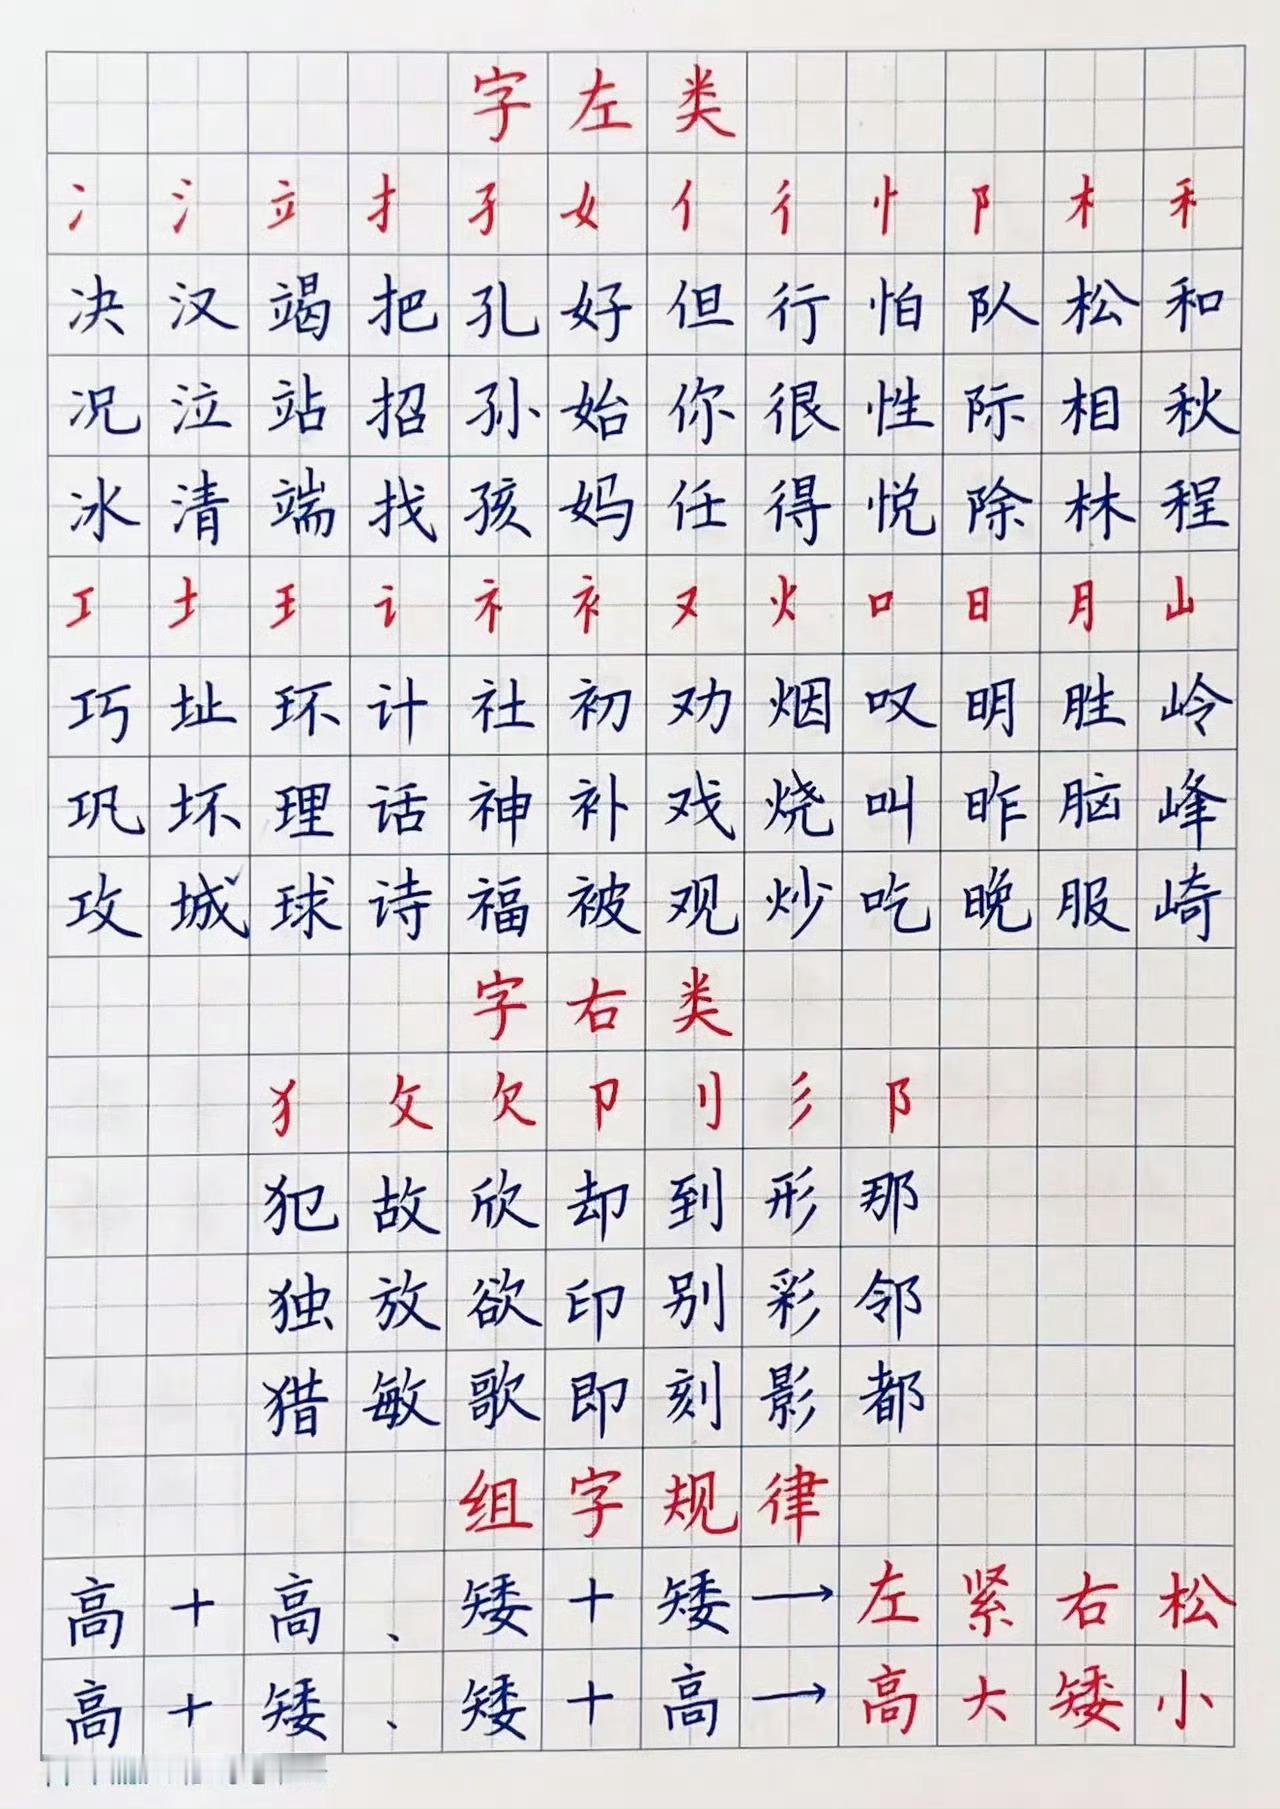 字左类
冫 氵 立 扌 子 女 亻 彳 忄 阝 木 禾
决 汉 竭 把 孔 好 但 行 怕 队 松 和
况 泣 站 招 孙 始 你 很 性 际 相 秋
冰 清 端 找 孩 妈 任 得 悦 除 林 程
工 土 王 讠 礻 衤 又 火 口 日 月 山
巧 址 环 计 社 初 劝 烟 叹 明 胜 岭
巩 坏 理 话 神 补 戏 烧 叫 昨 脑 峰
攻 城 球 诗 福 被 观 炒 吃 晚 服 崎
字右类
犭 攵 欠 卩 刂 彡 阝
犯 故 欣 却 到 形 那
独 放 欲 印 别 彩 邻
猎 敏 歌 即 刻 影 都
组字规律
高+高、矮+矮→左紧右松
高+矮、矮+高→高大矮小